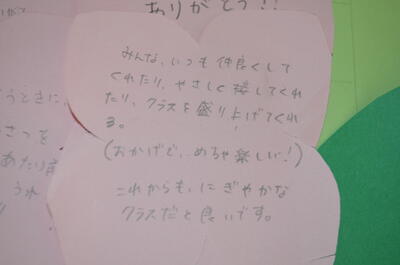 ありがとう!!
みんな、いつも仲良くして
くれたり、やさしく接してくれ
たり、クラスを盛り上げてくれ
る。
(おかげで、めちゃ楽しい!)
これからも、にぎやかな
クラスだと良いです。
うときに、
さつを
あたり前
うれ